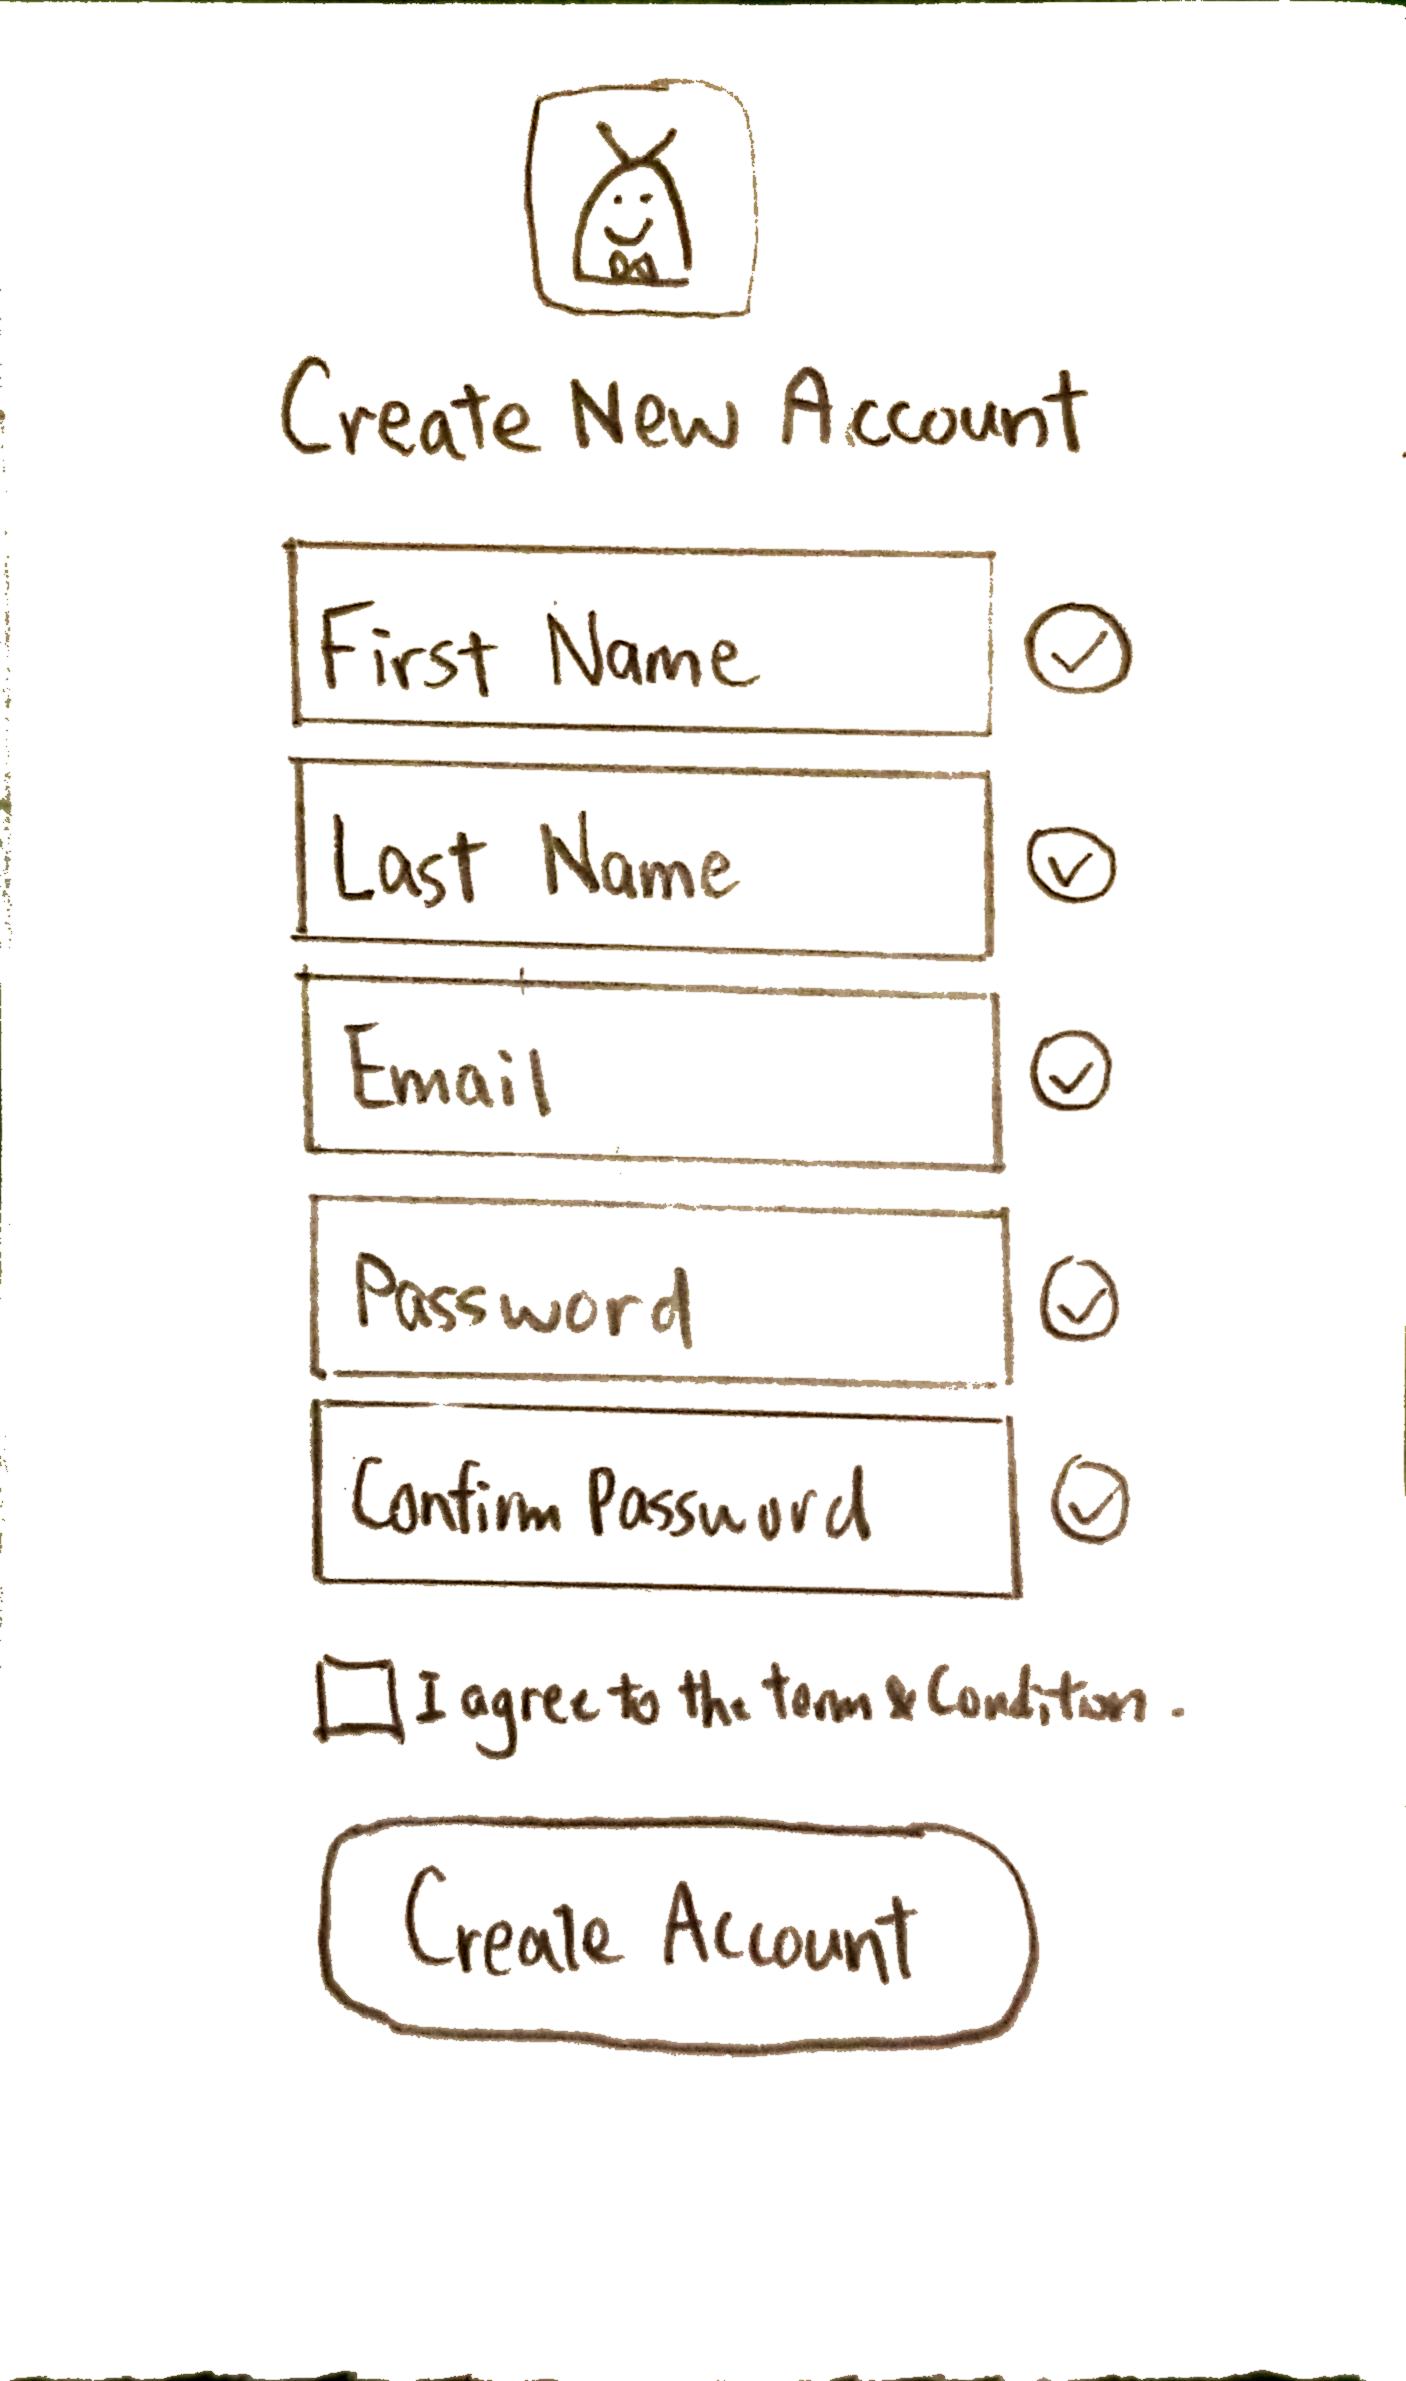 Create New Account
First Name
Last Name
Email
Password
Confirm Password
I agree to the term & Condition.
Create Account